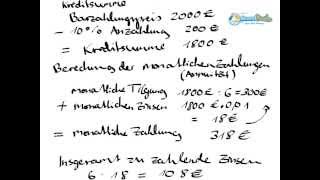 Kreditsumme
Barzahlungspreis 2000 €
- 10% Anzahlung 200 €
= Kreditsumme 1800 €
Berechnung der monatlichen Zahlungen
(Annuität)
monatliche Tilgung 1800 € : 6 = 300 €
+ monatlichen Zinsen 1800 € · 0,01
= 18 €
= monatliche Zahlung 318 €
Insgesamt zu zahlende Zinsen
6 · 18 = 108 €